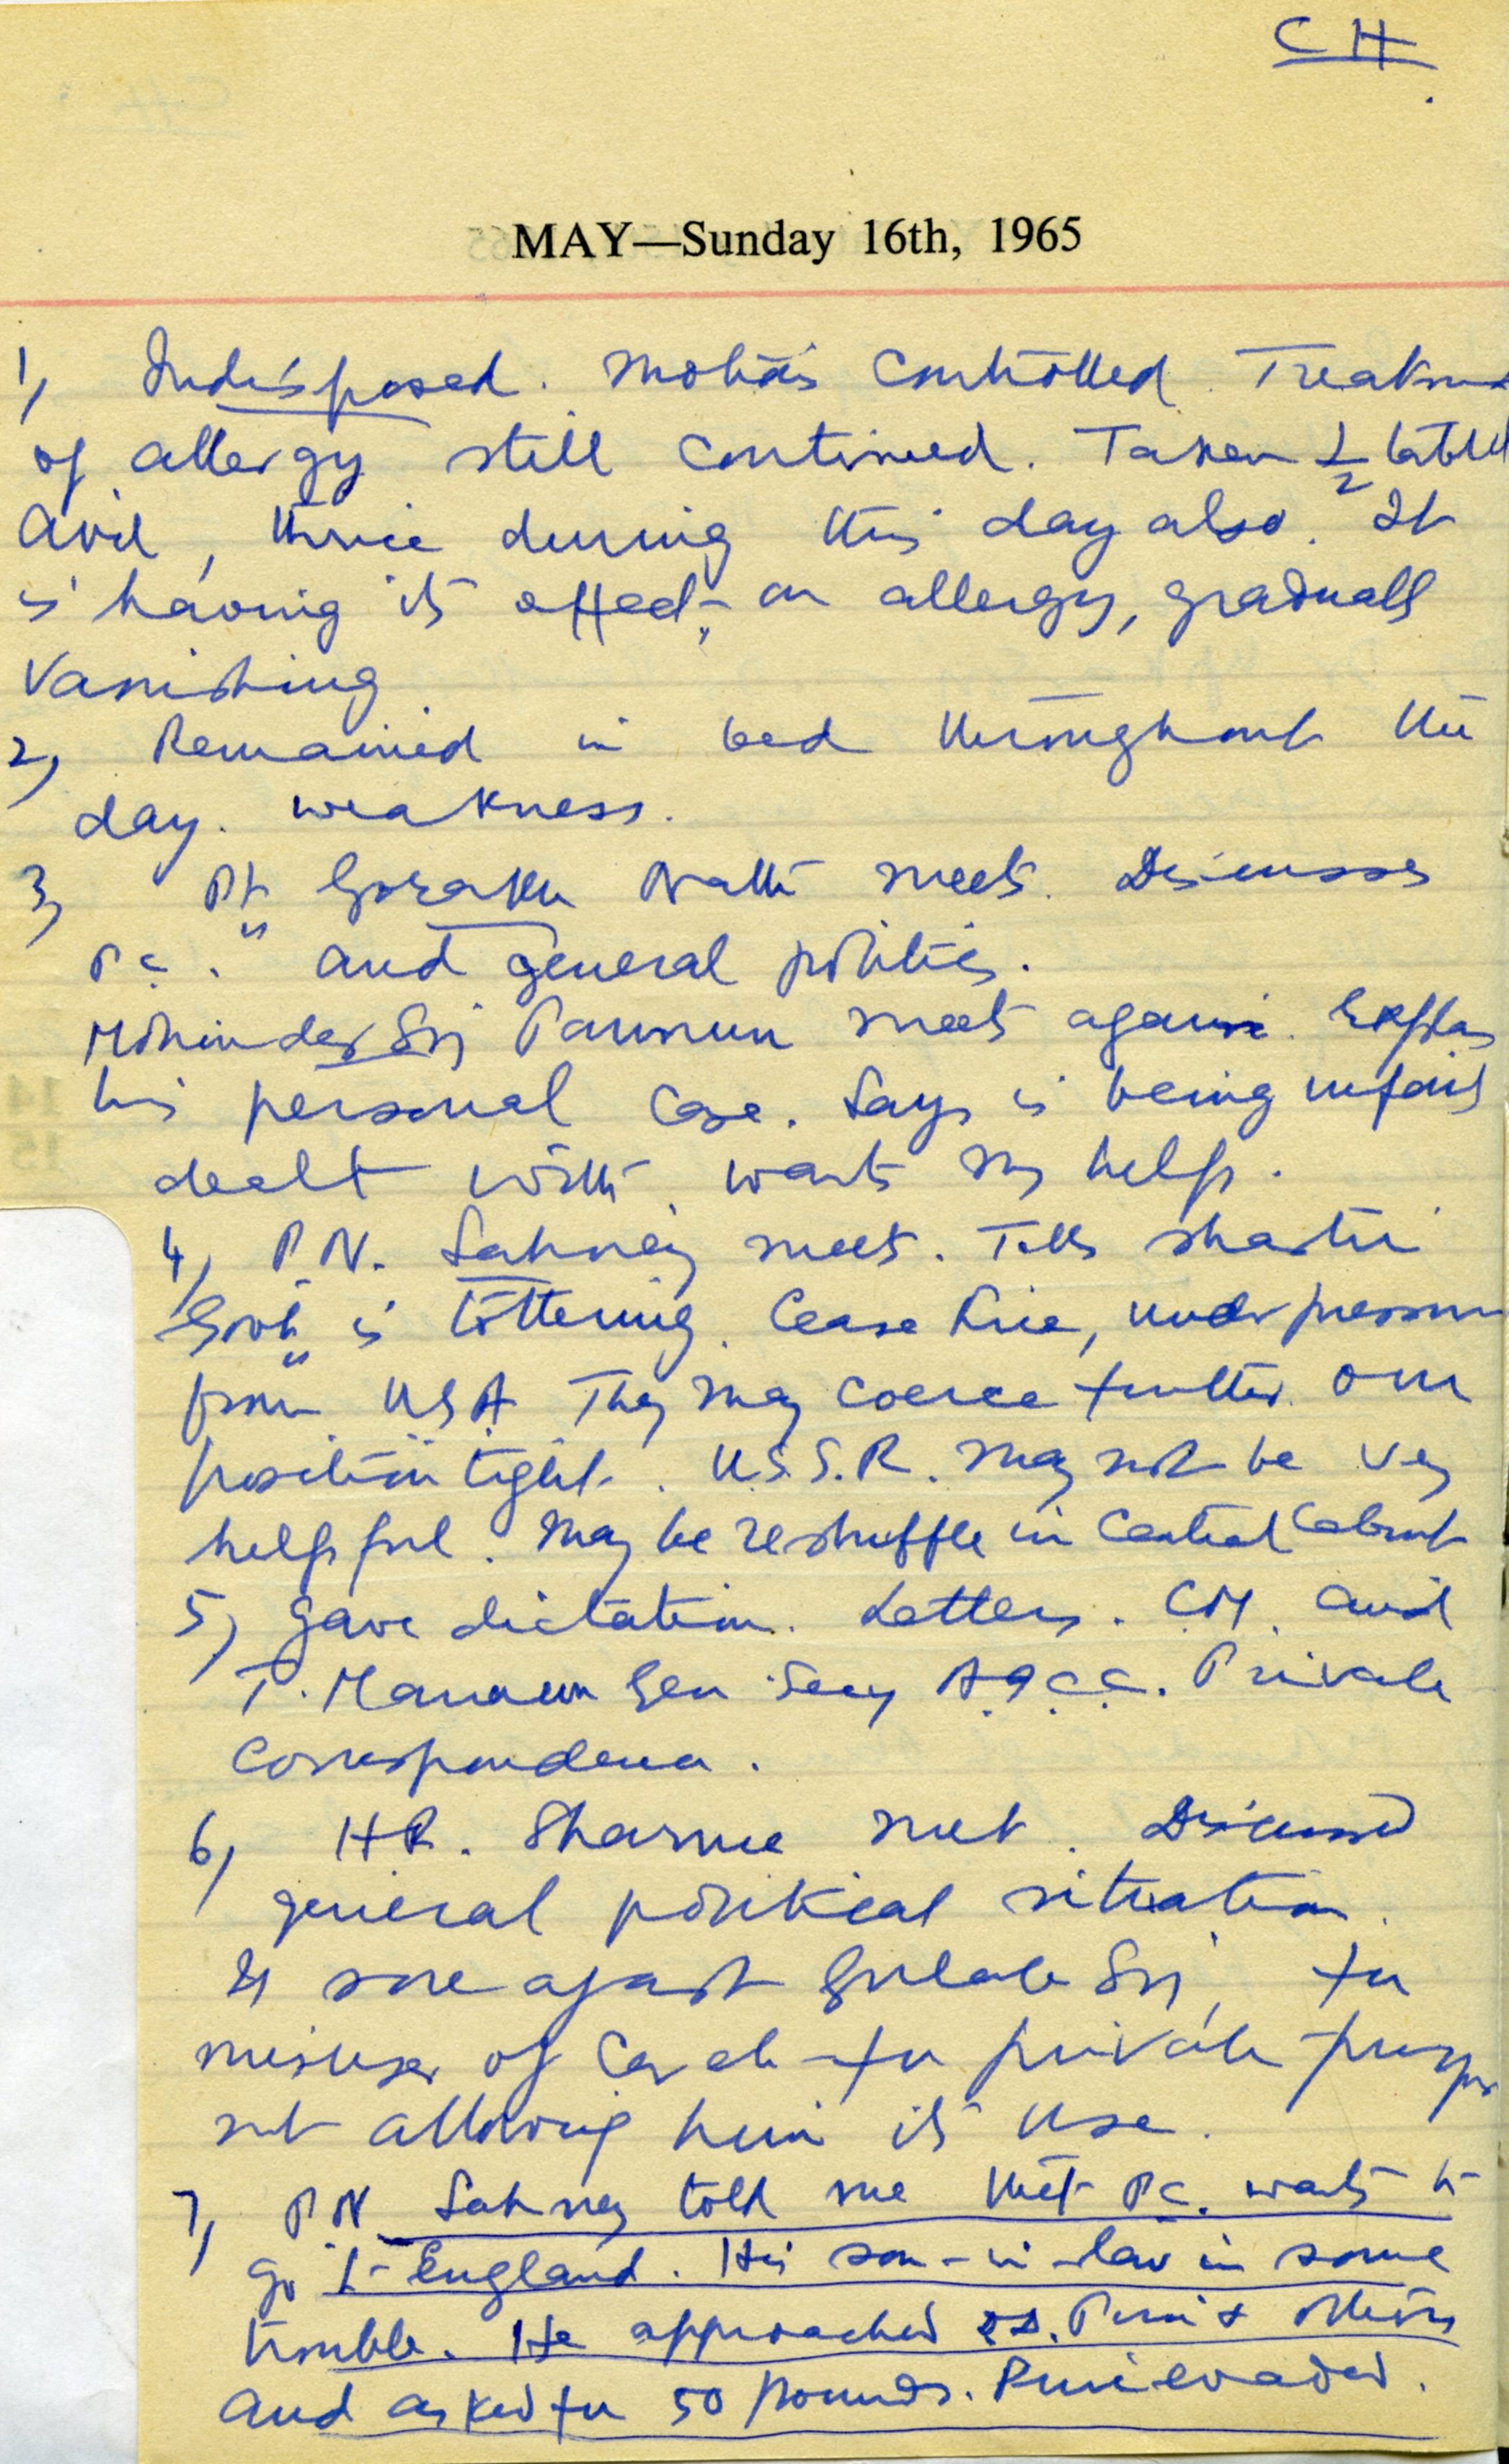 CH
MAY—Sunday 16th, 1965
1, Indisposed. Motions controlled. Treatment
of allergy still continued. Taken 1/2 tablet
Avil, thrice during this day also. It
is having its effect on allergy, gradually
vanishing
2, Remained in bed throughout the
day. weakness.
3, Pt Gorakh Nath meets. Discusses
P.C. and general politics.
Mohinder Sing Pannun meets again. Explains
his personal case. Says is being unfairly
dealt with. wants my help.
4, P.N. Sahney meets. Tells Shastri
Govt is tottering. Cease Fire, under pressure
from USA They may coerce further. our
position tight. U.S.S.R. may not be very
helpful. May be reshuffle in Central Cabinet
5, Gave dictation. Letters. C.M. and
T. Manaen Gen Secy A.I.C.C. Private
Correspondence.
6, H.R. Sharma met. Discussed
general political situation.
Is sore against Gulab Sing, for
misuse of Car etc for private purpose
not allowing him its use.
7, P.N. Sahney told me that P.C. wants to
go to England. His son-in-law in some
trouble. He approached Puri & others
and asked for 50 pounds. Puri evaded.